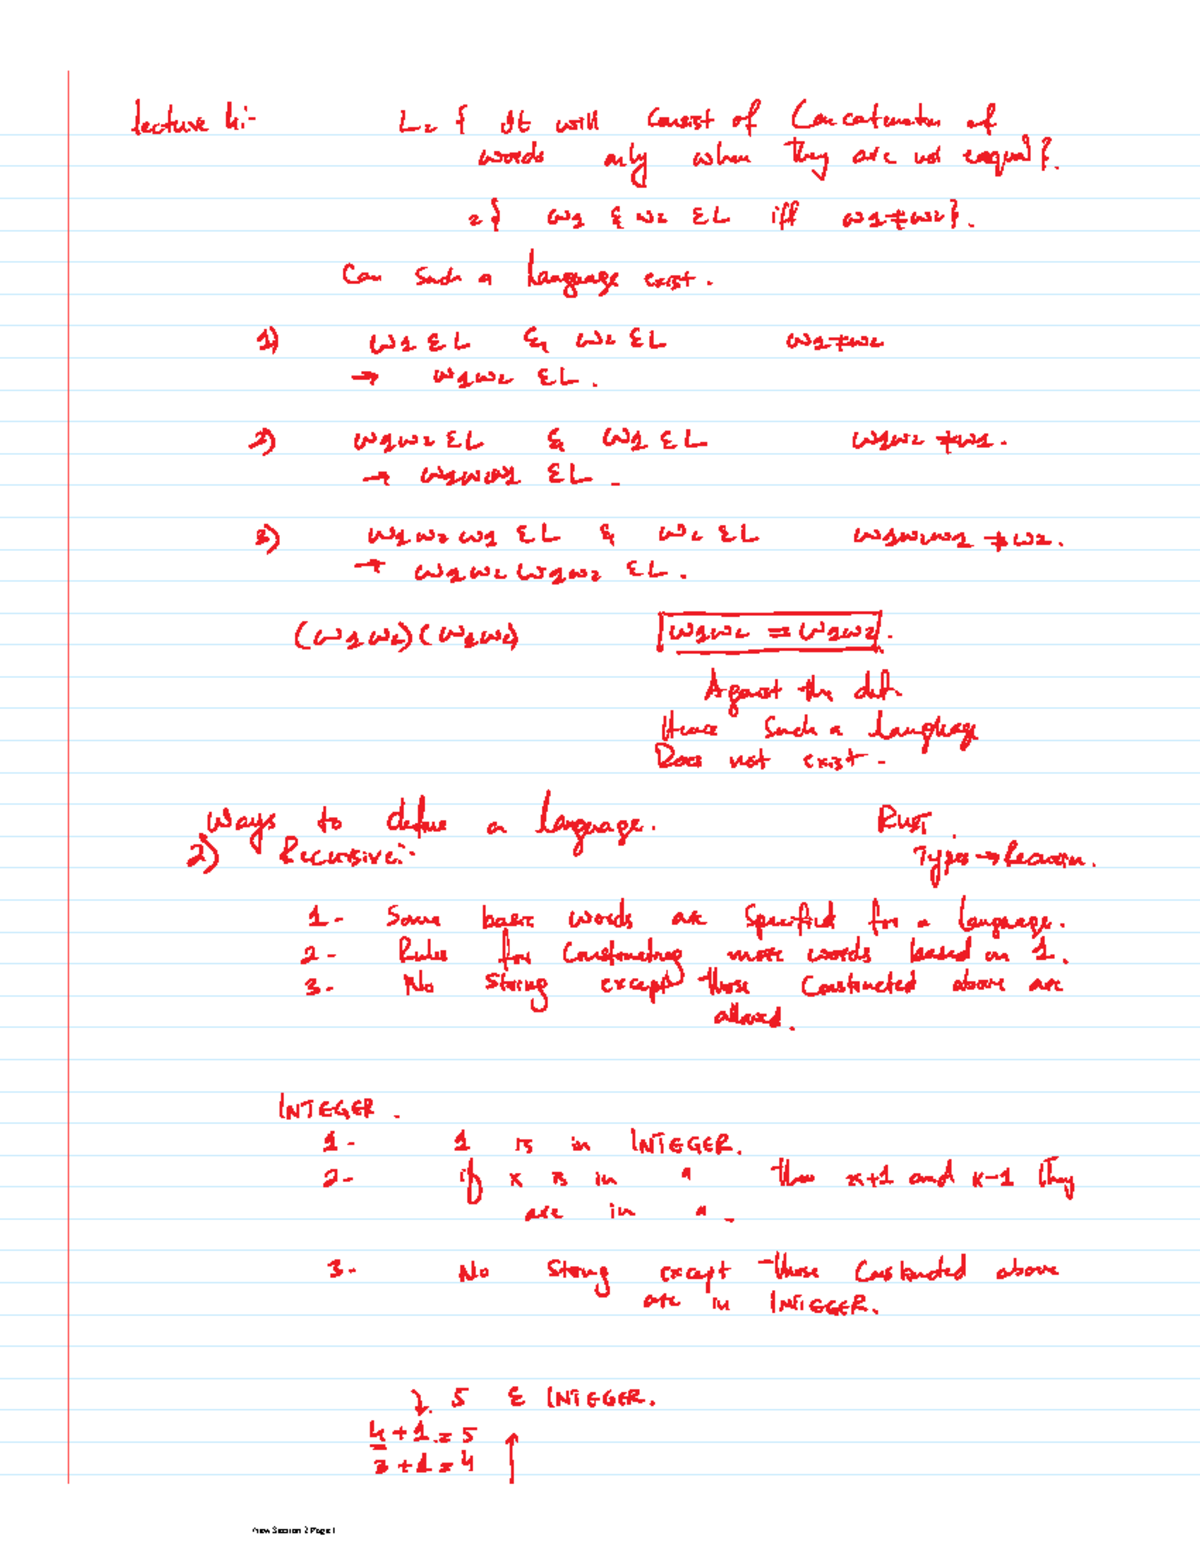 Lecture 4:- L= { It will consist of Concatenation of
words only when they are not eaqual}.
={ w1 & w2 ƐL iff w1≠w2}.
Can Such a language exist.
1) w1 ƐL & w2 ƐL w1≠w2
→ w1w2 ƐL.
2) w1w2 ƐL & w1 ƐL w1w2 ≠w1.
→ w1w2w1 ƐL.
3) w1w2w1 ƐL & w2 ƐL w1w2w1 ≠w2.
→ w1w2w1w2 ƐL.
(w1w2)(w1w2) w1w2 = w1w2.
Against the def.
Hence Such a language
Does not exist.
Ways to define a language. Rust.
2) Recursive:- Types →
1- Some basic words are Specified for a language.
2- Rules for Constructing more words based on 1.
3- No String except those Constructed above are
allowed.
INTEGER.
1- 1 is in INTEGER.
2- if x is in " then x+1 and x-1 they
are in ".
3- No String except those Constructed above
are in INTEGER.
↓. 5 Ɛ INTEGER.
4+1=5
3+1=4 ↑
New Session 2 Page 1